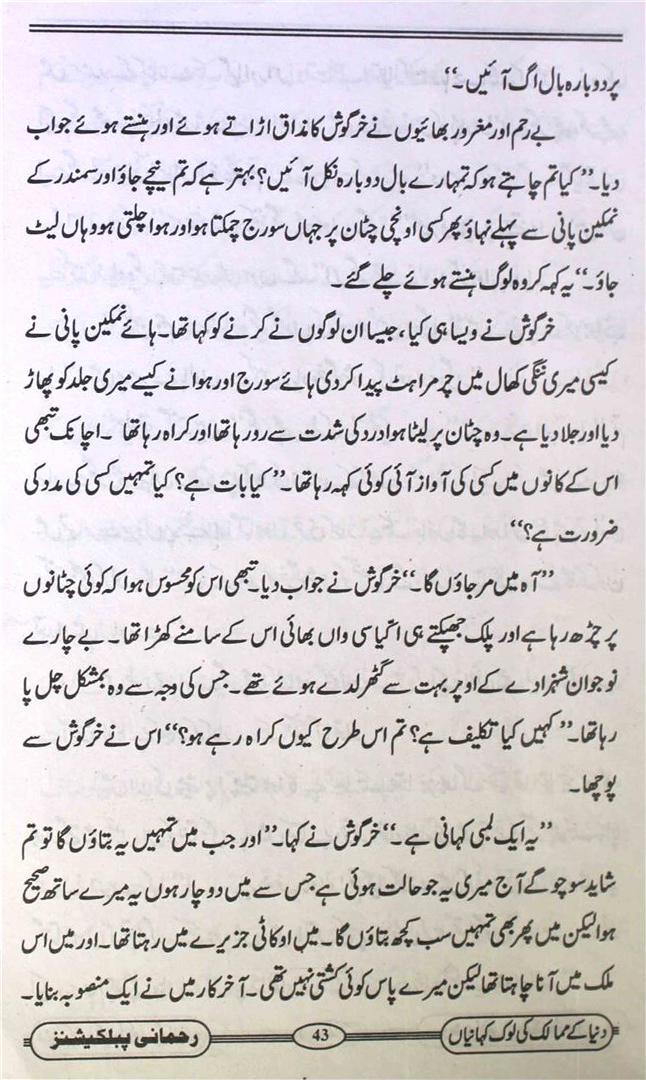 پر دوبارہ بال اگ آئیں۔“
بے رحم اور مغرور بھائیوں نے خرگوش کا مذاق اڑاتے ہوئے اور ہنستے ہوئے جواب
دیا۔ ”کیا تم چاہتے ہو کہ تمہارے بال دوبارہ نکل آئیں؟ بہتر ہے کہ تم نیچے جاؤ اور سمندر کے
نمکین پانی سے پہلے نہاؤ پھر کسی اونچی چٹان پر جہاں سورج چمکتا ہو اور ہوا چلتی ہو وہاں لیٹ
جاؤ۔“ یہ کہہ کر وہ لوگ ہنستے ہوئے چلے گئے۔
خرگوش نے ویسا ہی کیا، جیسا ان لوگوں نے کرنے کو کہا تھا۔ ہائے نمکین پانی نے
کیسی میری ننگی کھال میں چرمراہٹ پیدا کر دی ہائے سورج اور ہوا نے کیسے میری جلد کو پھاڑ
دیا اور جلا دیا ہے۔ وہ چٹان پر لیٹا ہوا درد کی شدت سے رو رہا تھا اور کراہ رہا تھا ۔ اچانک تبھی
اس کے کانوں میں کسی کی آواز آئی کوئی کہہ رہا تھا۔ ”کیا بات ہے؟ کیا تمہیں کسی کی مدد کی
ضرورت ہے؟“
”آہ میں مر جاؤں گا۔“ خرگوش نے جواب دیا۔ تبھی اس کو محسوس ہوا کہ کوئی چٹانوں
پر چڑھ رہا ہے اور پلک جھپکتے ہی اکیاسی واں بھائی اس کے سامنے کھڑا تھا۔ بے چارے
نوجوان شہزادے کے اوپر بہت سے گٹھر لدے ہوئے تھے۔ جس کی وجہ سے وہ بمشکل چل پا
رہا تھا۔ ”کہیں کیا تکلیف ہے؟ تم اس طرح کیوں کراہ رہے ہو؟“ اس نے خرگوش سے
پوچھا۔
”یہ ایک لمبی کہانی ہے۔“ خرگوش نے کہا۔ ”اور جب میں تمہیں یہ بتاؤں گا تو تم
شاید سوچو گے آج میری یہ جو حالت ہوئی ہے جس سے میں دوچار ہوں یہ میرے ساتھ صحیح
ہوا لیکن میں پھر بھی تمہیں سب کچھ بتاؤں گا۔ میں اوکائی جزیرے میں رہتا تھا۔ اور میں اس
ملک میں آنا چاہتا تھا لیکن میرے پاس کوئی کشتی نہیں تھی۔ آخر کار میں نے ایک منصوبہ بنایا۔
دنیا کے ممالک کی لوک کہانیاں 43 رحمانی پبلکیشنز